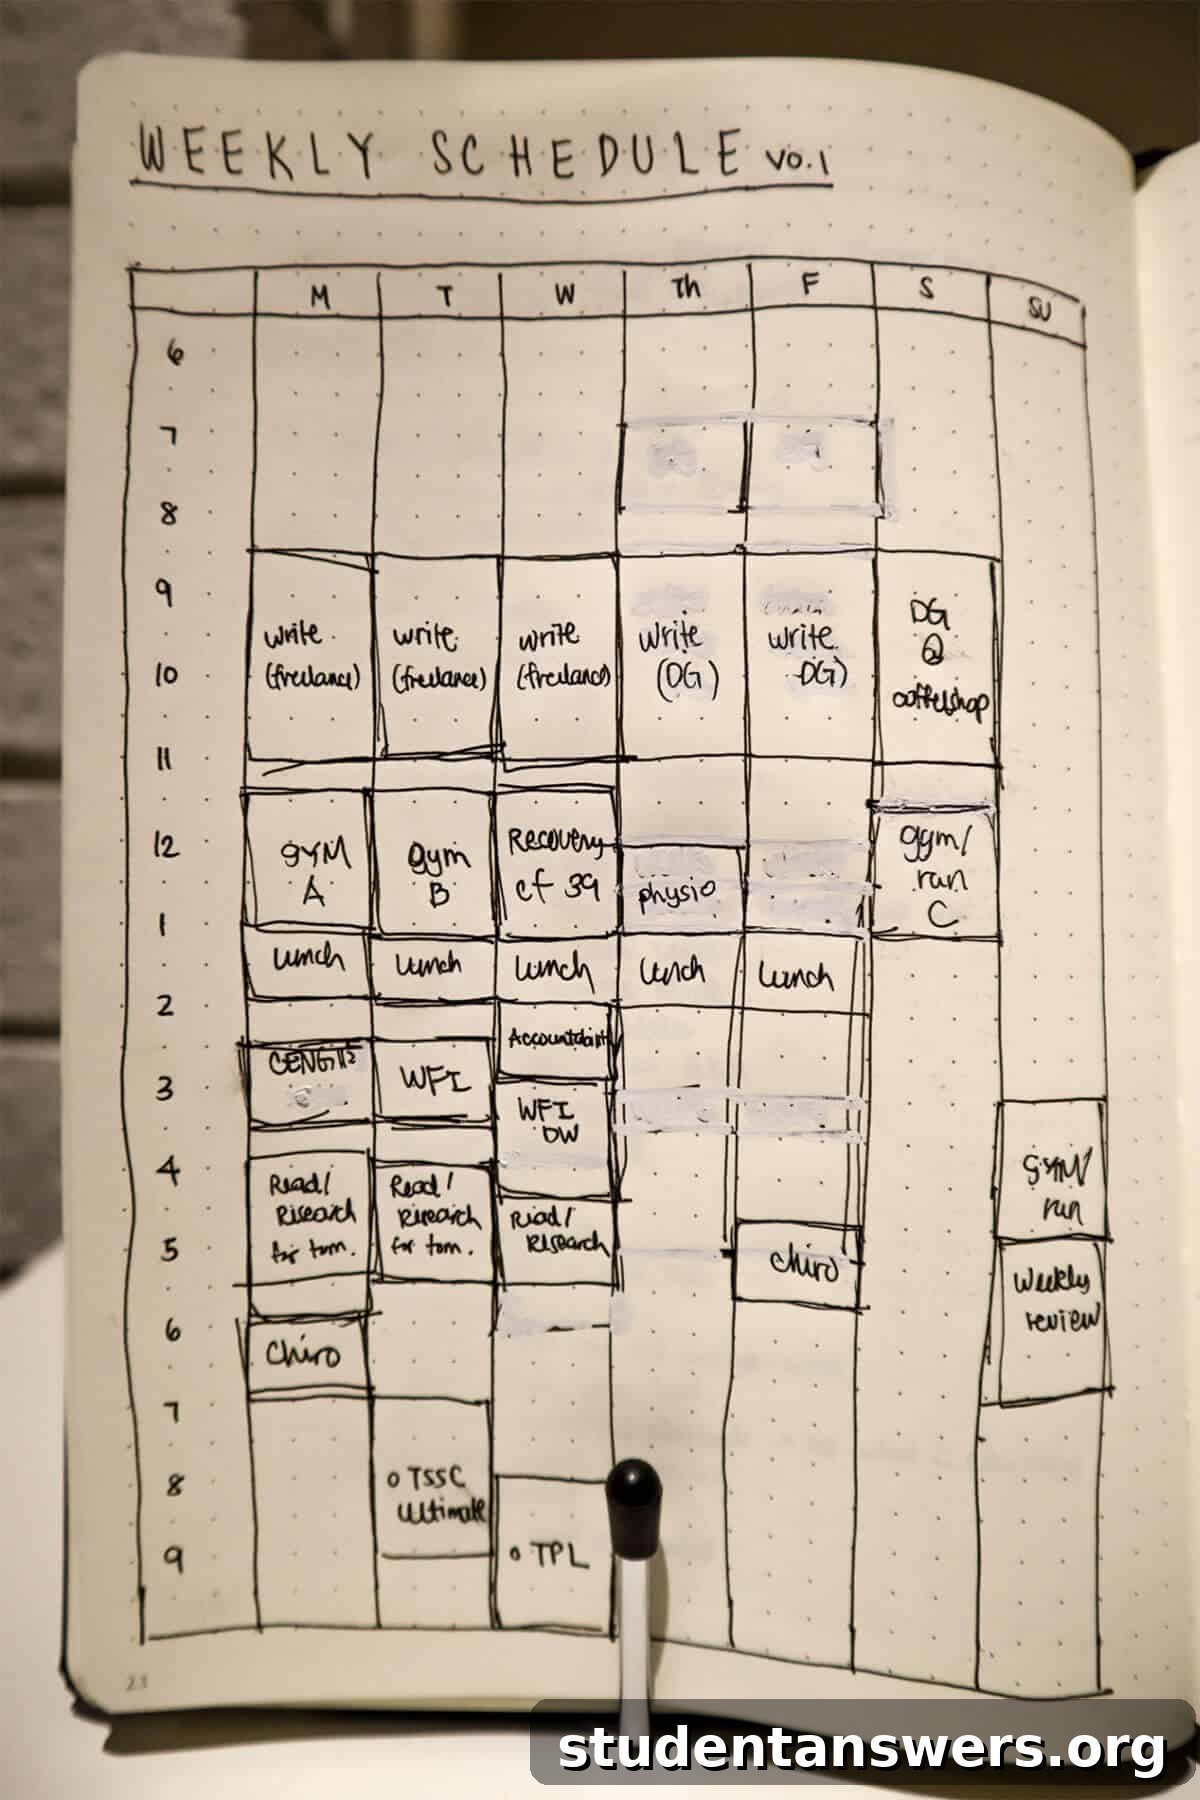 WEEKLY SCHEDULE V0.1
M T W Th F S SU
6
7
8
9
write write write write write DG
(freelance) (freelance) (freelance) (DG) DG) @
10
coffeeshop
11
12
GYM gym Recovery physio gym/
A B cf 39 run
C
1
lunch lunch lunch lunch lunch
2
Accountabilit
CENG 112 WFI
3
WFI
DW
4
Read/ Read/ Read/ gym/
Research Research Research run
for tom. for tom.
5
chiro
Weekly
review
6
chiro
7
8
o TSSC
ultimate
9
o TPL
23
studentanswers.org